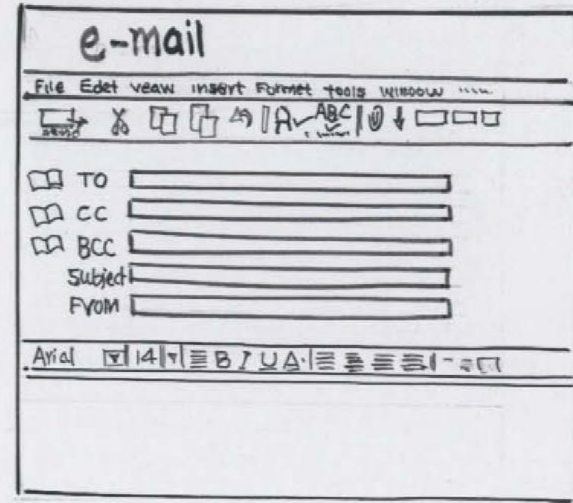 e-mail
File Edet veaw insert Formet tools window
send ABC
TO
CC
BCC
Subject
FVOM
Arial 14 B I U A